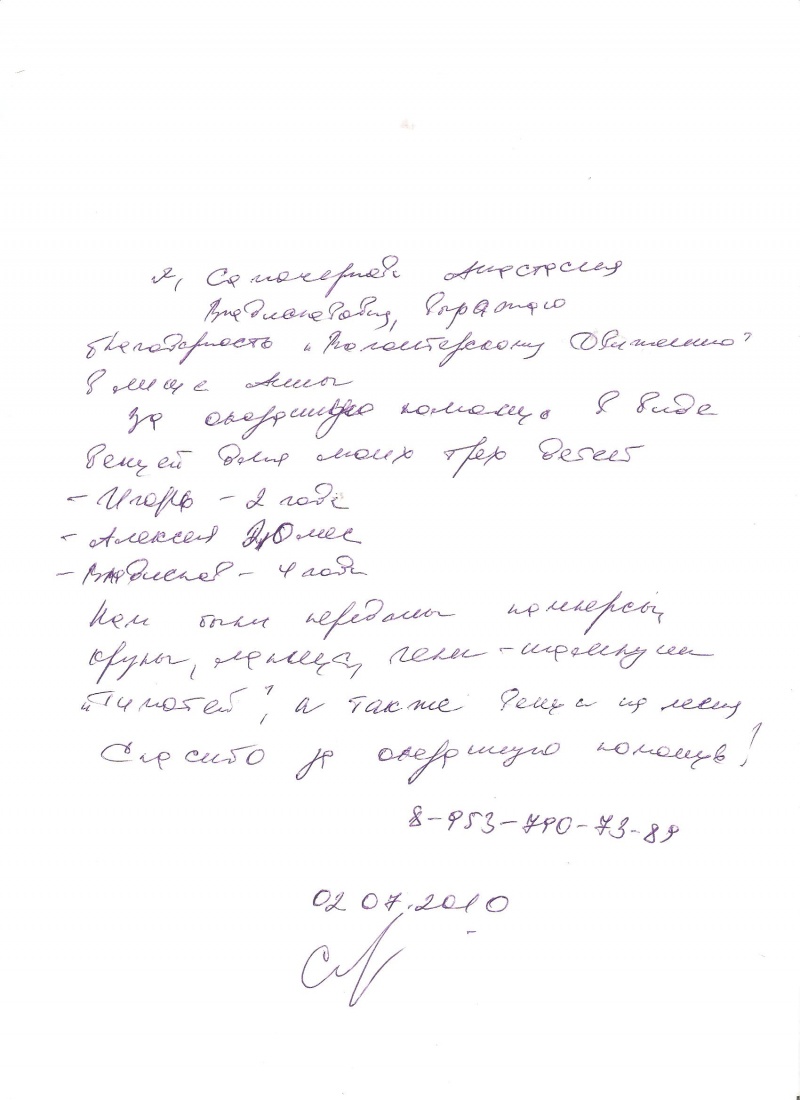 Я, Анастасия
Владиславовна, выражаю
благодарность "Волонтерскому Движению"
в лице Анны
За оказанную помощь в виде
вещей для моих трех детей
- Игорь - 2 года
- Алексей 10 мес
- Владислав - 4 года
Нам были переданы памперсы,
крупы, гель-шампуни
"Тимотей", а также вещи на меня
Спасибо за оказанную помощь!
8-953-790-73-89
02 07.2010